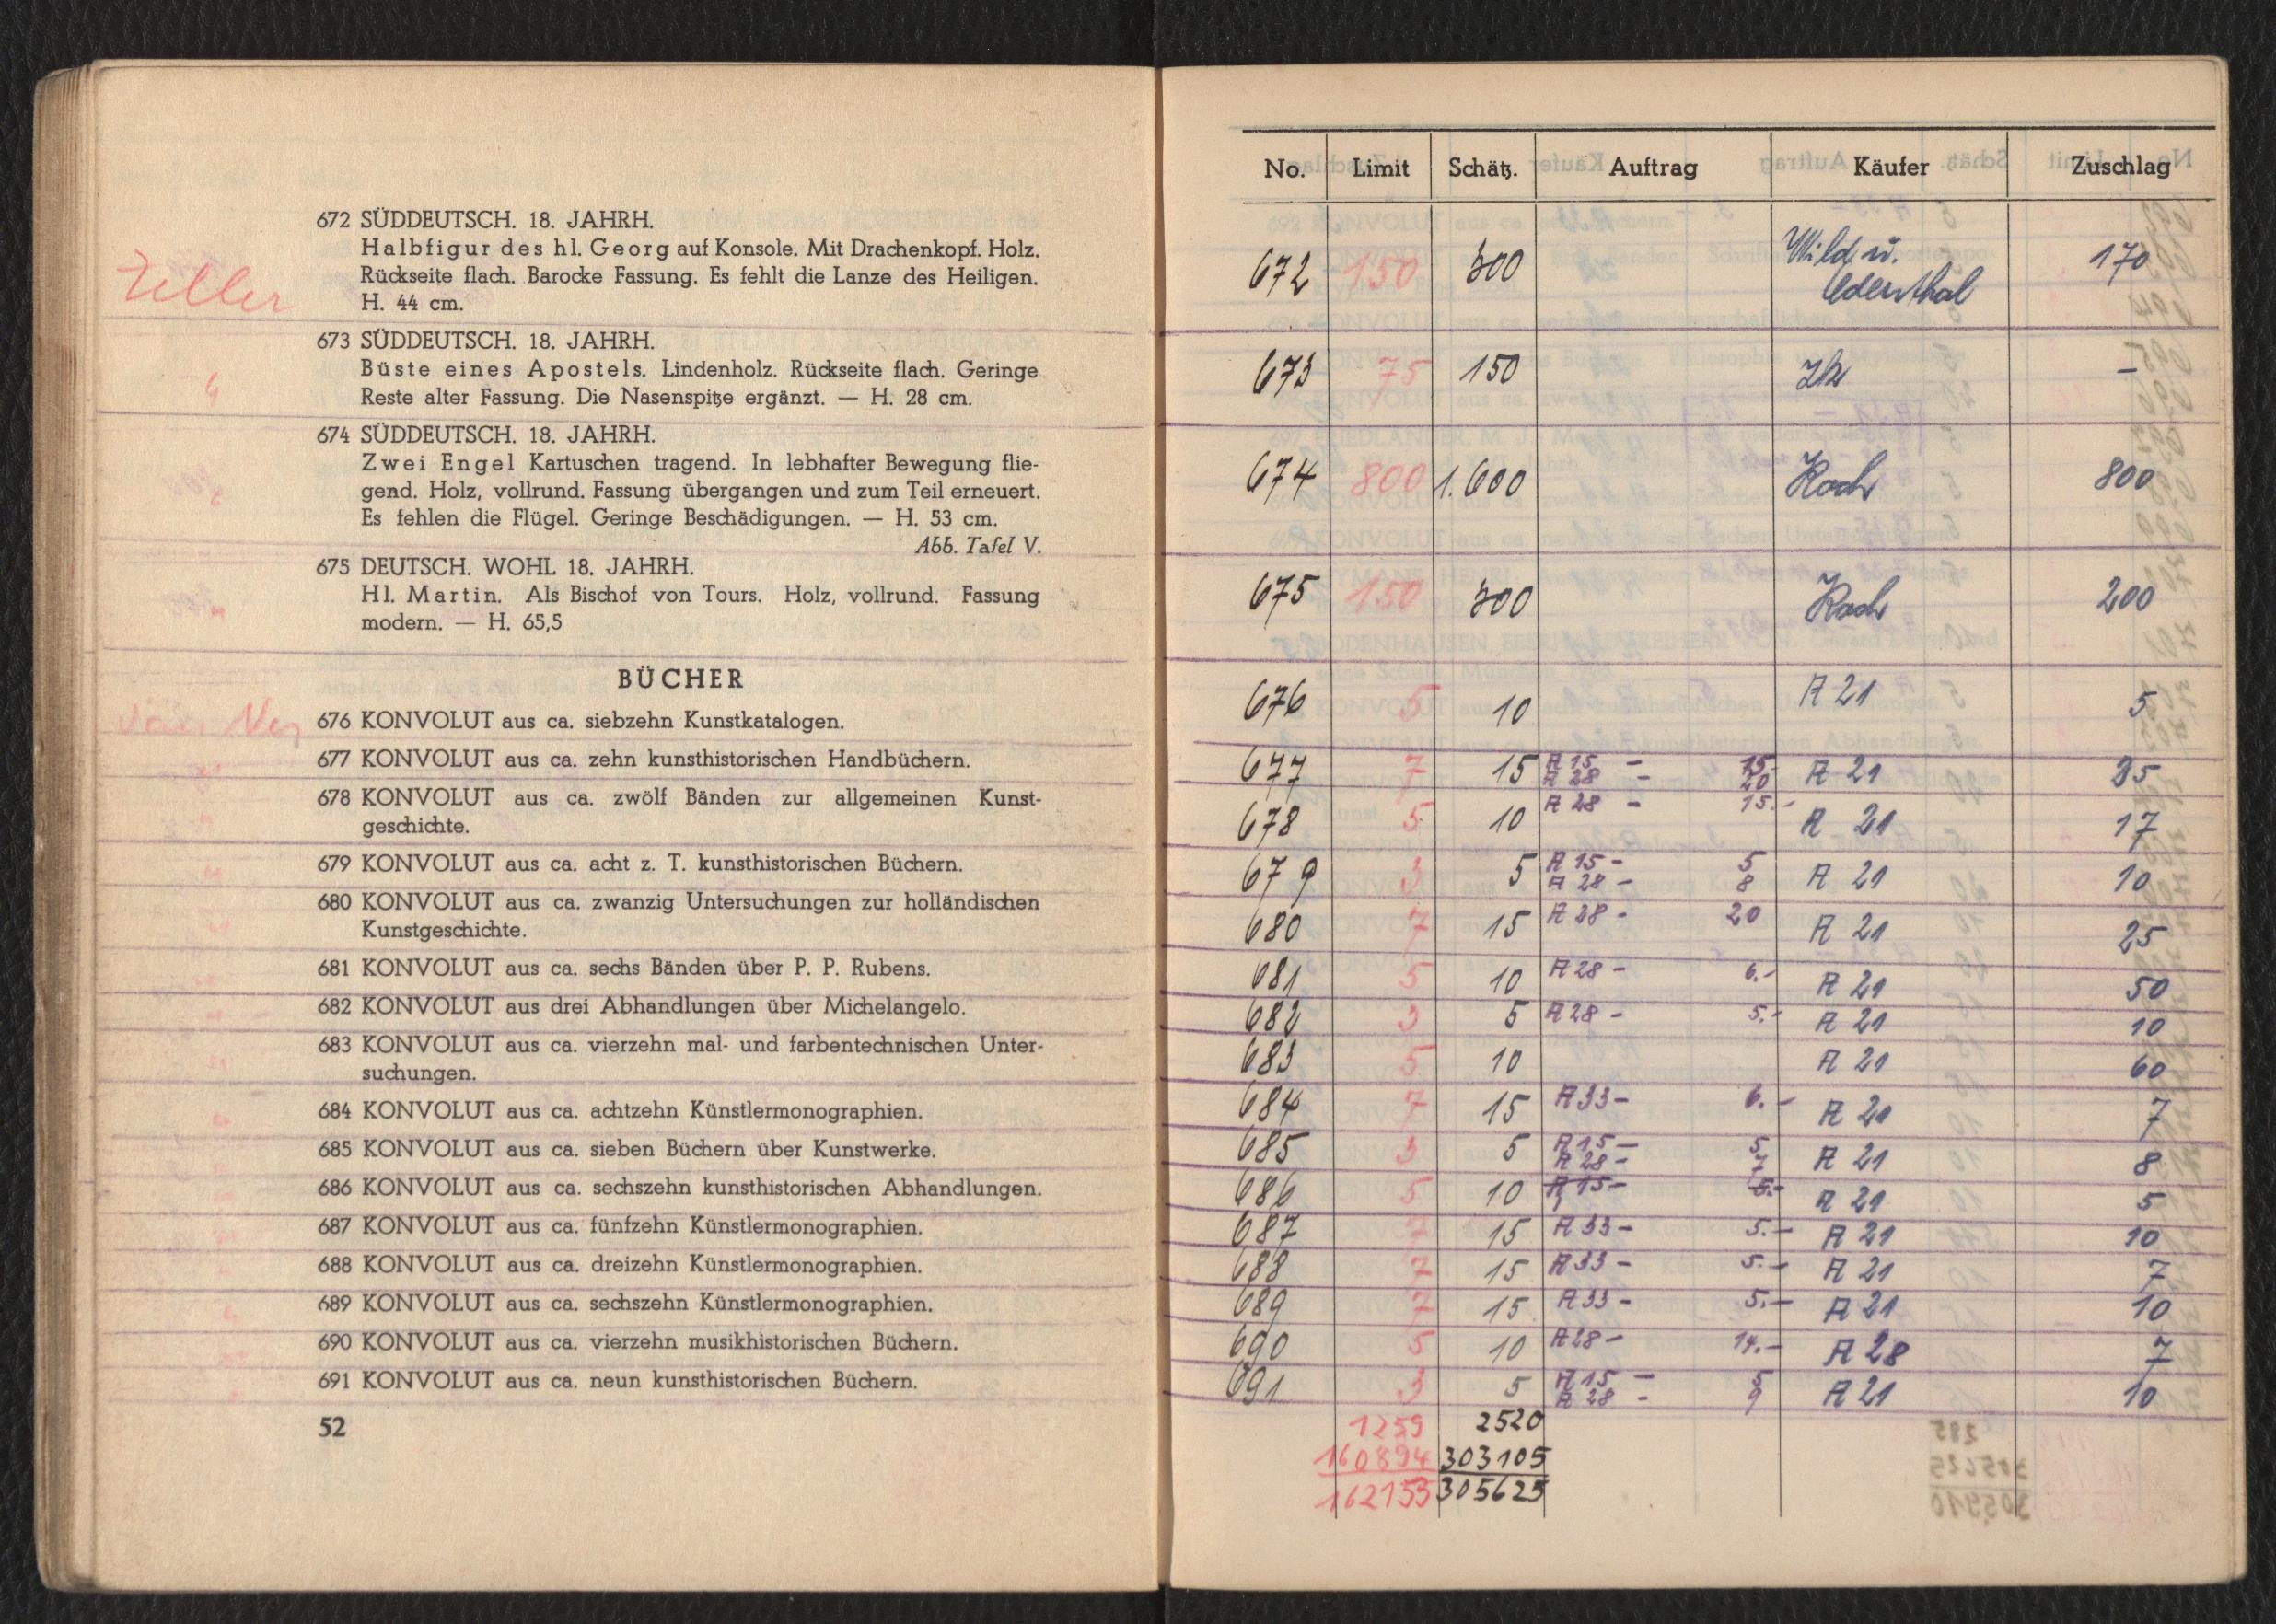 672 SÜDDEUTSCH. 18. JAHRH.
Halbfigur des hl. Georg auf Konsole. Mit Drachenkopf. Holz.
Rückseite flach. Barocke Fassung. Es fehlt die Lanze des Heiligen.
H. 44 cm.
Zeller
673 SÜDDEUTSCH. 18. JAHRH.
Büste eines Apostels. Lindenholz. Rückseite flach. Geringe
Reste alter Fassung. Die Nasenspitze ergänzt. — H. 28 cm.
674 SÜDDEUTSCH. 18. JAHRH.
Zwei Engel Kartuschen tragend. In lebhafter Bewegung flie-
gend. Holz, vollrund. Fassung übergangen und zum Teil erneuert.
Es fehlen die Flügel. Geringe Beschädigungen. — H. 53 cm.
Abb. Tafel V.
675 DEUTSCH. WOHL 18. JAHRH.
Hl. Martin. Als Bischof von Tours. Holz, vollrund. Fassung
modern. — H. 65,5
BÜCHER
676 KONVOLUT aus ca. siebzehn Kunstkatalogen.
677 KONVOLUT aus ca. zehn kunsthistorischen Handbüchern.
678 KONVOLUT aus ca. zwölf Bänden zur allgemeinen Kunst-
geschichte.
679 KONVOLUT aus ca. acht z. T. kunsthistorischen Büchern.
680 KONVOLUT aus ca. zwanzig Untersuchungen zur holländischen
Kunstgeschichte.
681 KONVOLUT aus ca. sechs Bänden über P. P. Rubens.
682 KONVOLUT aus drei Abhandlungen über Michelangelo.
683 KONVOLUT aus ca. vierzehn mal- und farbentechnischen Unter-
suchungen.
684 KONVOLUT aus ca. achtzehn Künstlermonographien.
685 KONVOLUT aus ca. sieben Büchern über Kunstwerke.
686 KONVOLUT aus ca. sechszehn kunsthistorischen Abhandlungen.
687 KONVOLUT aus ca. fünfzehn Künstlermonographien.
688 KONVOLUT aus ca. dreizehn Künstlermonographien.
689 KONVOLUT aus ca. sechszehn Künstlermonographien.
690 KONVOLUT aus ca. vierzehn musikhistorischen Büchern.
691 KONVOLUT aus ca. neun kunsthistorischen Büchern.
52
No. Limit Schätz. Auftrag Käufer Zuschlag
672 150 300 Wild u. 170
Odenthal
673 75 150 Zk –
674 800 1.600 Koch 800
675 150 300 Koch 200
676 5 10 A 21 5
677 7 15 A 15 – 15 A 21 25
A 28 – 20
678 5 10 A 28 – 15.- A 21 17
679 3 5 A 15 – 5 A 21 10
A 28 – 8
680 7 15 A 28 – 20 A 21 25
681 5 10 A 28 – 6.- A 21 50
682 3 5 A 28 – 5.- A 21 10
683 5 10 A 21 60
684 7 15 A 33 – 6.- A 21 7
685 3 5 A 15 – 5 A 21 8
A 28 – 7
686 5 10 A 15 – 5.- A 21 5
687 7 15 A 33 – 5.- A 21 10
688 7 15 A 33 – 5.- A 21 7
689 7 15 A 33 – 5.- A 21 10
690 5 10 A 28 – 14.- A 28 7
691 3 5 A 15 – 5 A 21 10
A 28 – 9
1259 2520
160894 303105
162153 305625